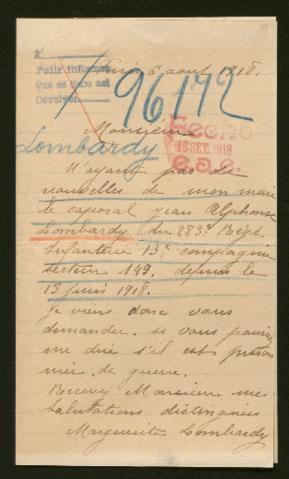 Pedir informes
Que se hizo asi
Devolver
Paris 6 aout 1918.
196172
Monsieur
Hecho
16 SET. 1918
Lombardy
N'ayant pas de
nouvelles de mon mari
le caporal Jean Alphonse
Lombardy du 283e Regt
Infanterie 13e compagnie
secteur 149. depuis le
13 juin 1918.
je viens donc vous
demander si vous pouvez
me dire s'il est prison
nier de guerre.
Recevez Monsieur mes
salutations distinguées
Marguerite Lombardy